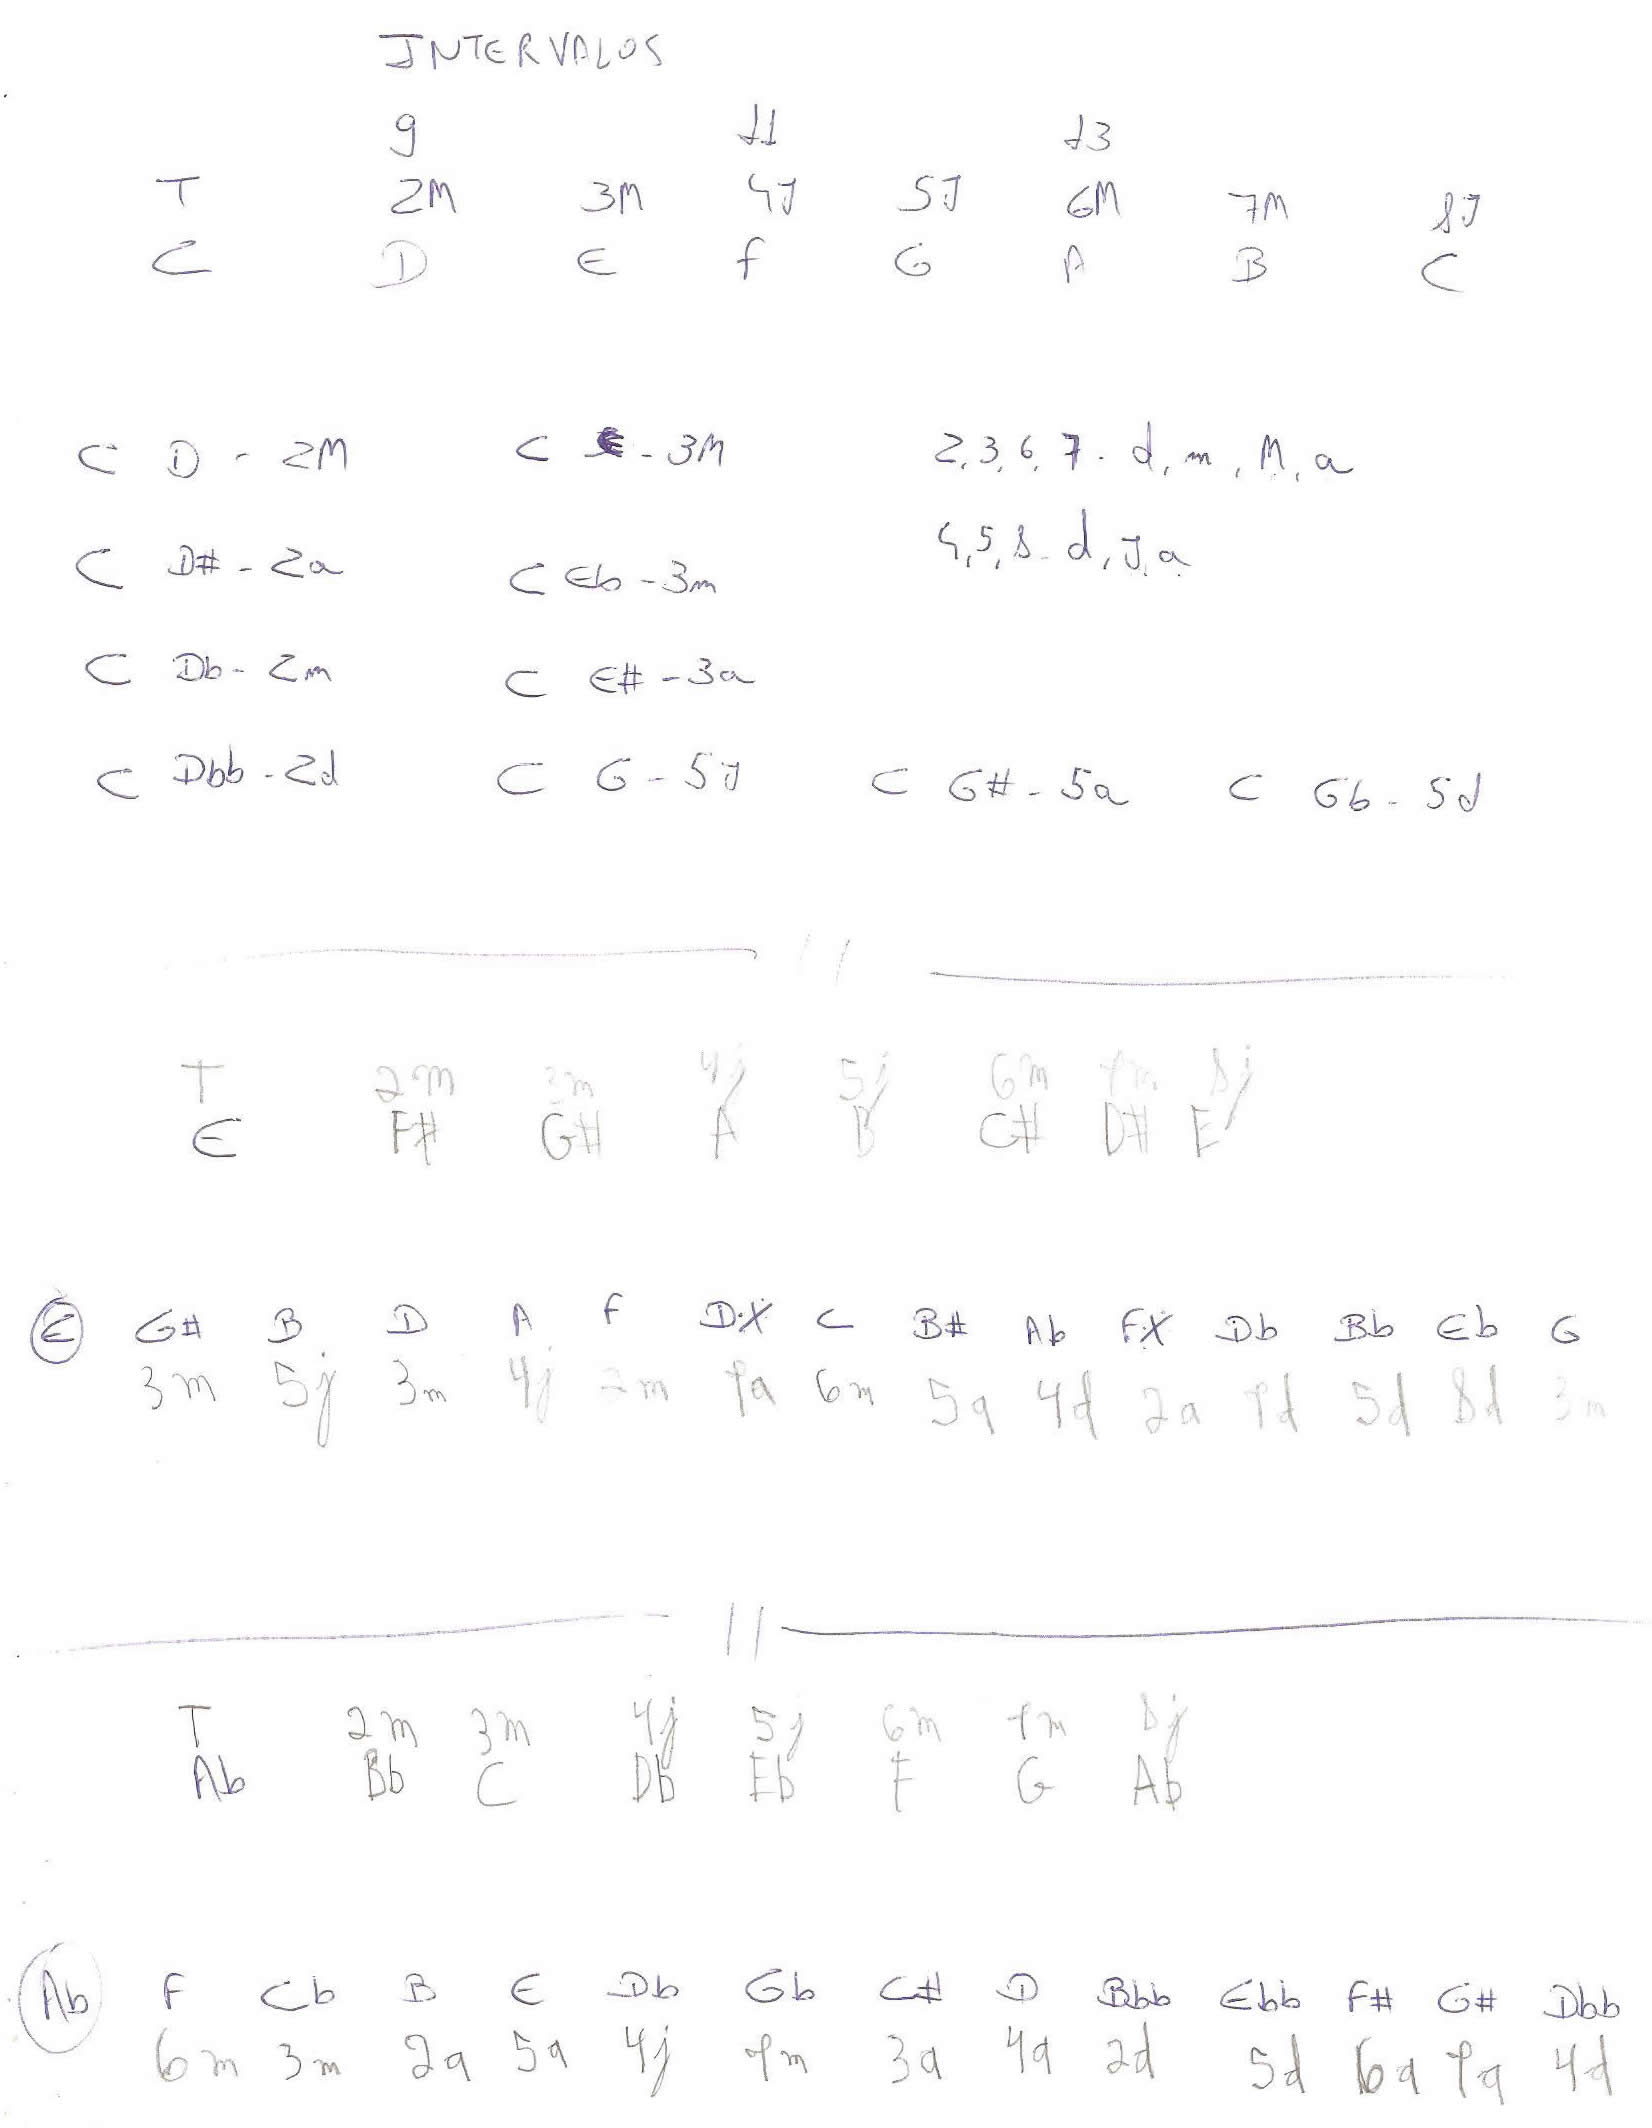 INTERVALOS
9 11 13
T 2M 3M 4J 5J 6M 7M 8J
C D E F G A B C
C D - 2M C E - 3M 2,3,6,7 - d, m, M, a
C D# - 2a C Eb - 3m 4,5,8 - d, J, a
C Db - 2m C E# - 3a
C Dbb - 2d C G - 5J C G# - 5a C Gb - 5d
//
T 2m 3m 4j 5j 6m 7m 8j
E F# G# A B C# D# E
E G# B D A F DX C B# Ab FX Db Bb Eb G
3m 5j 3m 4j 2m 7a 6m 5a 4d 2a 7d 5d 8d 3m
//
T 2m 3m 4j 5j 6m 7m 8j
Ab Bb C Db Eb F G Ab
Ab F Cb B E Db Gb C# D Bbb Ebb F# G# Dbb
6m 3m 2a 5a 4j 7m 3a 4a 2d 5d 6a 7a 4d